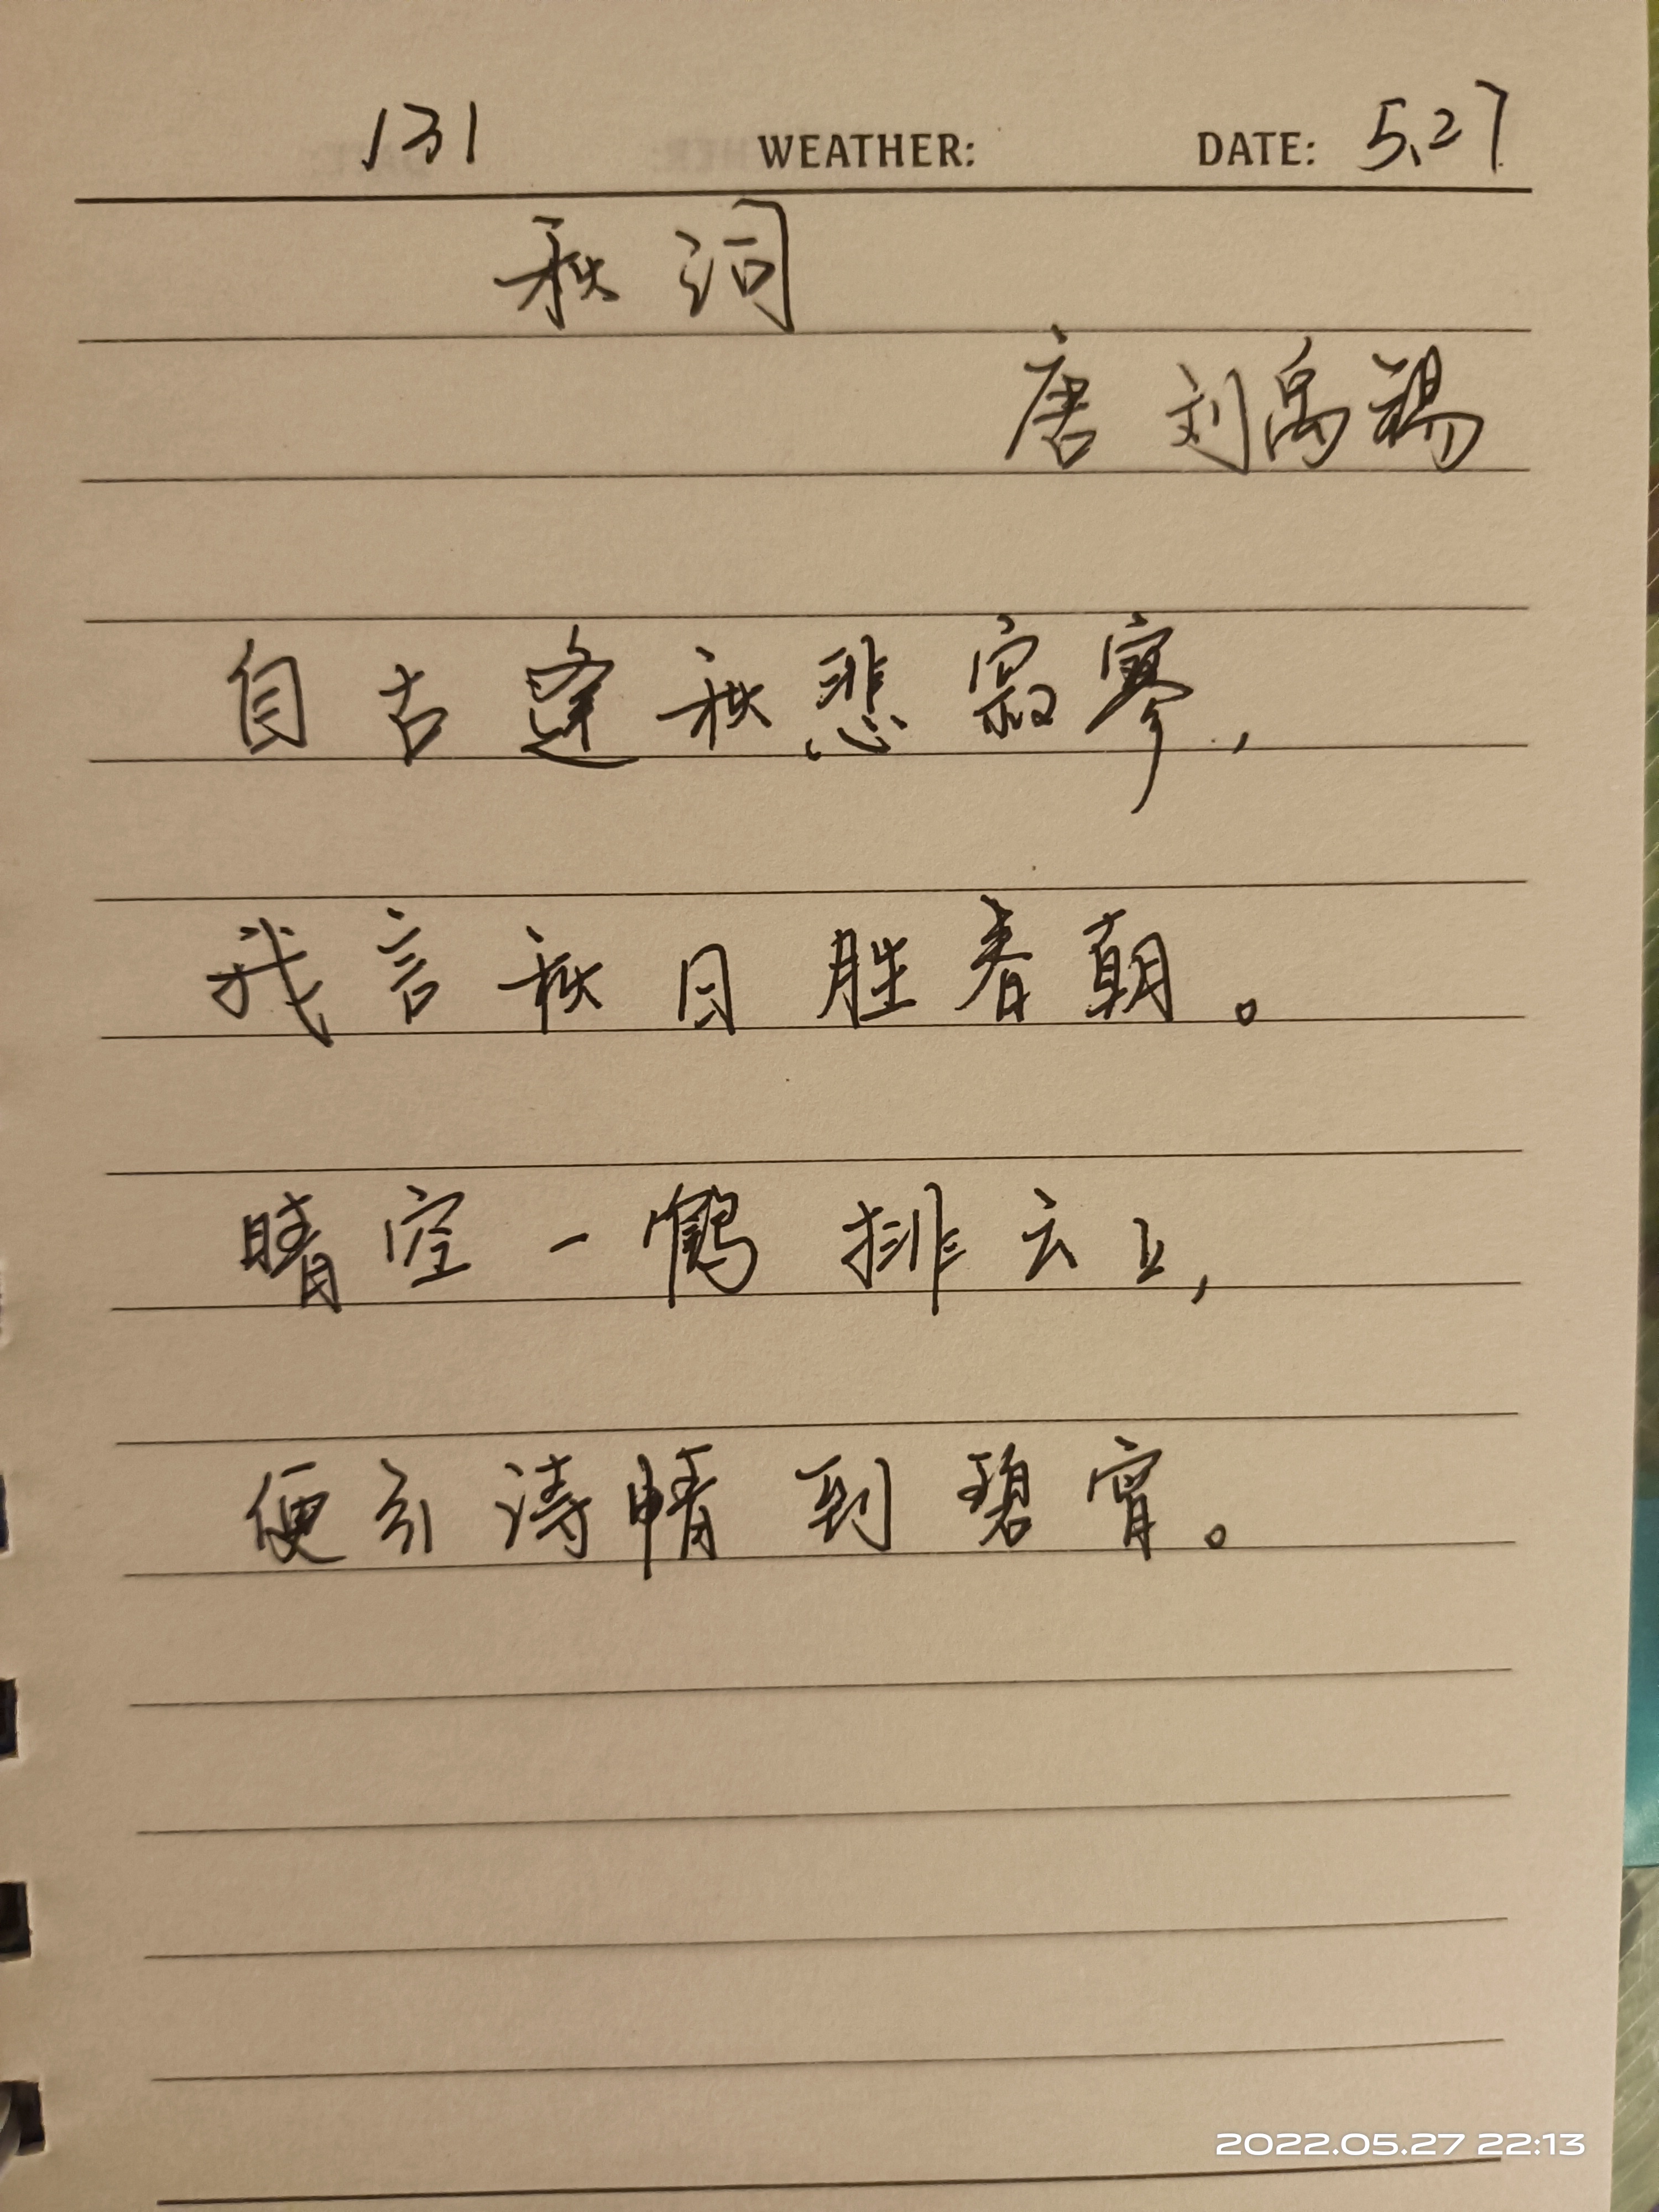 131 WEATHER: DATE: 5.27
秋词
唐 刘禹锡
自古逢秋悲寂寥,
我言秋日胜春朝。
晴空一鹤排云上,
便引诗情到碧宵。
2022.05.27 22:13